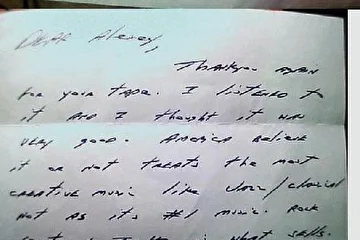 Dear Alexey,
Thank you again
for your tape. I listened to
it and I thought it was
very good. America believe
it or not treats the most
creative music like Jazz/classical
not as its #1 music. Rock
is what sells.